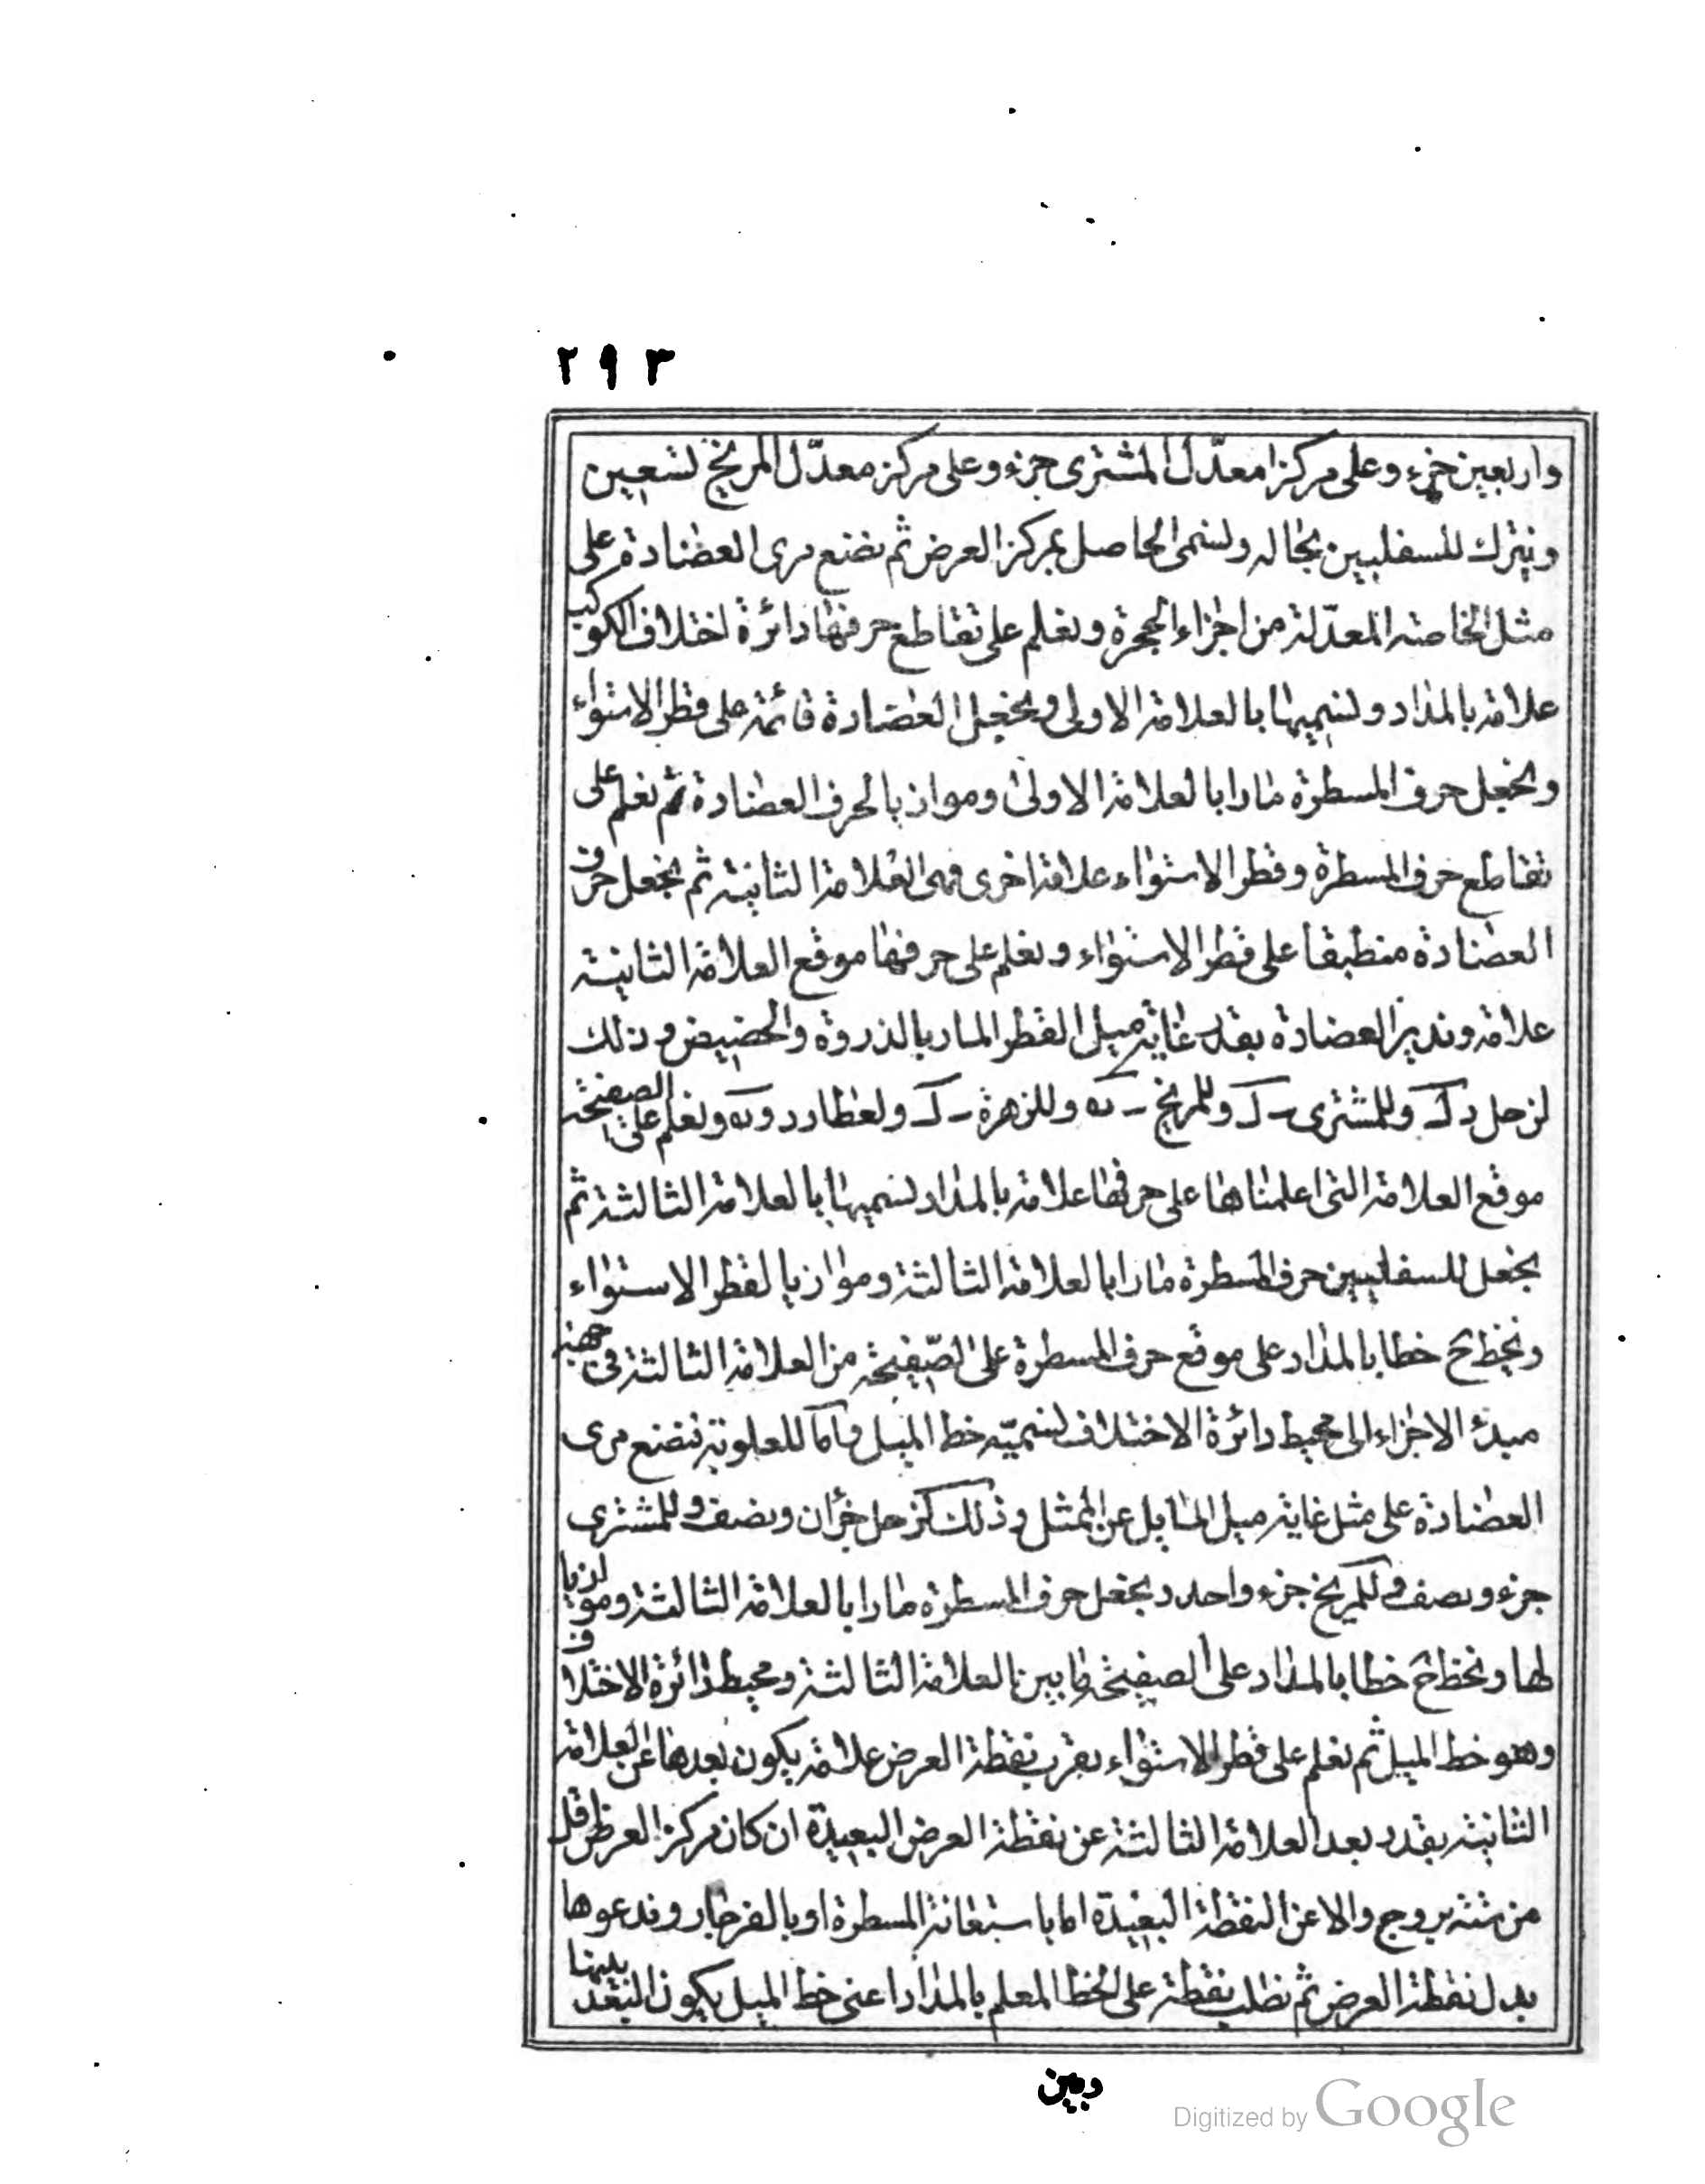 ٢٩٣
واربعين جزء وعلى مركز معدّل المشترى جزء وعلى مركز معدّل المريخ تسعين
ونترك للسفليين بحاله ونسمى الحاصل بمركز العرض ثم نضع مرى العضادة على
مثل الخاصه المعدّلة من اجزاء الحجرة ونعلم على تقاطع حرفها دائرة اختلاف الكوكب
علامة بالمداد ونسميها بالعلامة الاولى ونجعل العضادة قائمة على قطر الاستواء
ونجعل حرف المسطرة مارا بالعلامة الاولى وموازيا لحرف العضادة ثم نعلم على
تقاطع حرف المسطرة وقطر الاستواء علامة اخرى وهى العلامة الثانية ثم نجعل حرف
العضادة منطبقا على قطر الاستواء ونعلم على حرفها موقع العلامة الثانية
علامة وندير العضادة بقدر غاية ميل القطر المار بالذروة والحضيض وذلك
لزحل وللمشترى وللمريخ وللزهرة ولعطارد ونعلم على الصفيحة
موقع العلامة التى اعلمناها على حرفها علامة بالمداد نسميها بالعلامة الثالثة ثم
نجعل للسفليين حرف المسطرة مارا بالعلامة الثالثة وموازيا لقطر الاستواء
ونخط ح خطا بالمداد على موقع حرف المسطرة على الصّفيحة من العلامة الثالثة فى جهة
مبدء الاجزاء الى محيط دائرة الاختلاف نسميّه خط الميل واما للعلوية فنضع مرى
العضادة على مثل غاية ميل المايل عن الممثل وذلك لزحل جزان ونصف وللمشترى
جزء ونصف وللمريخ جزء واحد ونجعل حرف المسطرة مارا بالعلامة الثالثة وموازيا
لها ونخط ح خطا بالمداد على الصفيحة ما بين العلامة الثالثة ومحيط دائرة الاختلاف
وهو خط الميل ثم نعلم على قطر الاستواء بقرب نقطة العرض علامة يكون بعدها عن العلامة
الثانية بقدر بعد العلامة الثالثة عن نقطة العرض البعيدة ان كان مركز العرض اقل
من ستة بروج والا عن النقطة البعيدة اما باستعانة المسطرة او بالفرجار وندعوها
بدل نقطة العرض ثم نطلب نقطة على الخط المعلم بالمداد اعنى خط الميل يكون البعد بينها
وبين
Digitized by Google